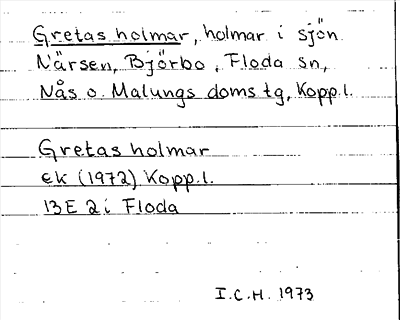 Gretas holmar, holmar i sjön
Närsen, Björbo, Floda sn,
Nås o. Malungs doms tg, Kopp.l.
Gretas holmar
ek (1972) Kopp.l.
13E 2i Floda
I.C.H. 1973